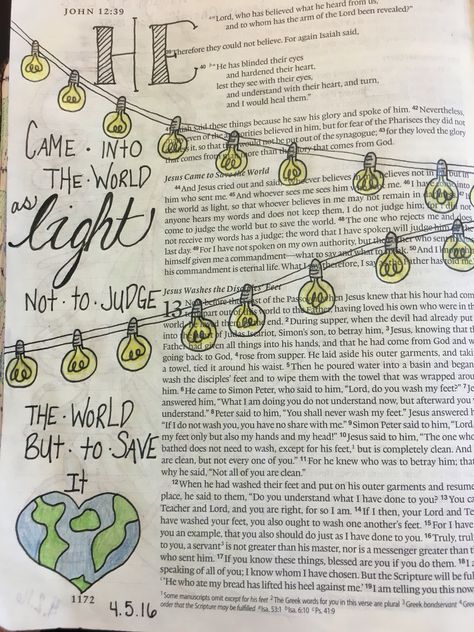 JOHN 12:39
HE
CAME · INTO
THE · WORLD
as
light
NOT · TO · JUDGE
THE · WORLD
BUT · TO · SAVE
It
"Lord, who has believed what he heard from us,
and to whom has the arm of the Lord been revealed?"
39 Therefore they could not believe. For again Isaiah said,
40 "He has blinded their eyes
and hardened their heart,
lest they see with their eyes,
and understand with their heart, and turn,
and I would heal them."
said these things because he saw his glory and spoke of him. 42 Nevertheless,
authorities believed in him, but for fear of the Pharisees they did not
it, so that they would not be put out of the synagogue; 43 for they loved the glory
that comes from more than the glory that comes from God.
Jesus Came to Save the World
44 And Jesus cried out and said, believes in me, believes not in but in
him who sent me. 45 And whoever sees me sees him 46 I have
the world as light, so that whoever believes in me may not remain in
anyone hears my words and does not keep them, I do not judge him; for
come to judge the world but to save the world. 48 The one who rejects me and
not receive my words has a judge; the word that I have spoken will judge him
last day. 49 For I have not spoken on my own authority, but the Father who
himself given me a commandment—what to say and what to speak. 50 And I
his commandment is eternal life. What I therefore, I say Father has told me
Jesus Washes the Disciples' Feet
13 Now before the of the Passover, when Jesus knew that his hour had
part out of this world to the Father, having loved his own who were in
world, he loved them to the end. 2 During supper, when the devil had already put
into the of Judas Iscariot, Simon's son, to betray him, 3 Jesus, knowing that
Father had given all things into his hands, and that he had come from God and
going back to God, 4 rose from supper. He laid aside his outer garments, and
a towel, tied it around his waist. 5 Then he poured water into a basin and began
wash the disciples' feet and to wipe them with the towel that was wrapped
him. 6 He came to Simon Peter, who said to him, "Lord, do you wash my feet?" 7
answered him, "What I am doing you do not understand now, but afterward you
understand." 8 Peter said to him, "You shall never wash my feet." Jesus answered
"If I do not wash you, you have no share with me." 9 Simon Peter said to him, "Lord,
my feet only but also my hands and my head!" 10 Jesus said to him, "The one who
bathed does not need to wash, except for his feet,¹ but is completely clean. And
are clean, but not every one of you." 11 For he knew who was to betray him; that
why he said, "Not all of you are clean."
12 When he had washed their feet and put on his outer garments and resumed
place, he said to them, "Do you understand what I have done to you? 13 You
Teacher and Lord, and you are right, for so I am. 14 If I then, your Lord and
have washed your feet, you also ought to wash one another's feet. 15 For I have
you an example, that you also should do just as I have done to you. 16 Truly,
to you, a servant³ is not greater than his master, nor is a messenger greater than
who sent him. 17 If you know these things, blessed are you if you do them. 18 I
speaking of all of you; I know whom I have chosen. But the Scripture will be
'He who ate my bread has lifted his heel against me.' 19 I am telling you this now
¹ Some manuscripts omit except for his feet ² The Greek words for you in this verse are plural ³ Greek bondservant ⁴ Greek
order that the Scripture may be fulfilled Isa. 53:1 Isa. 6:10 Ps. 41:9
1172
4.5.16